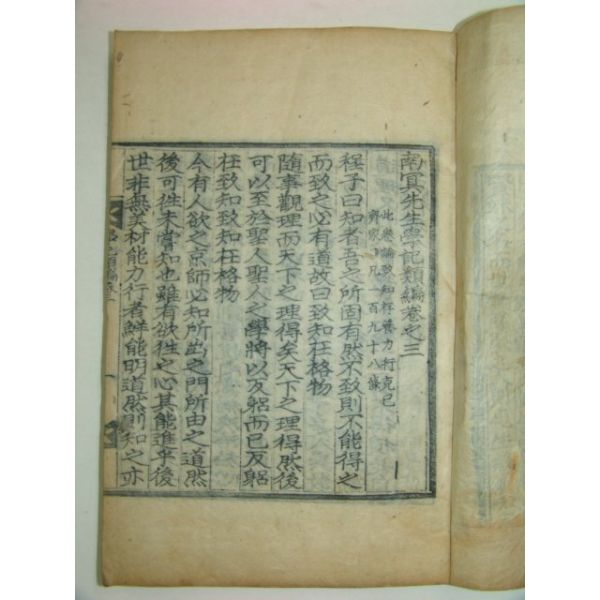 南冥先生學記類編卷之三
此卷論致知存養力行克己
齊家 凡一百九十八條
程子曰知者吾之所固有然不致則不能得之
而致之必有道故曰致知在格物
隨事觀理而天下之理得矣天下之理得然後
可以至於聖人聖人之學將以反躬而已反躬
在致知致知在格物
今有人欲之京師必知所出之門所由之道然
後可徃未嘗知也雖有欲徃之心其能進乎後
世非無美材能力行者鮮能明道然則知之亦